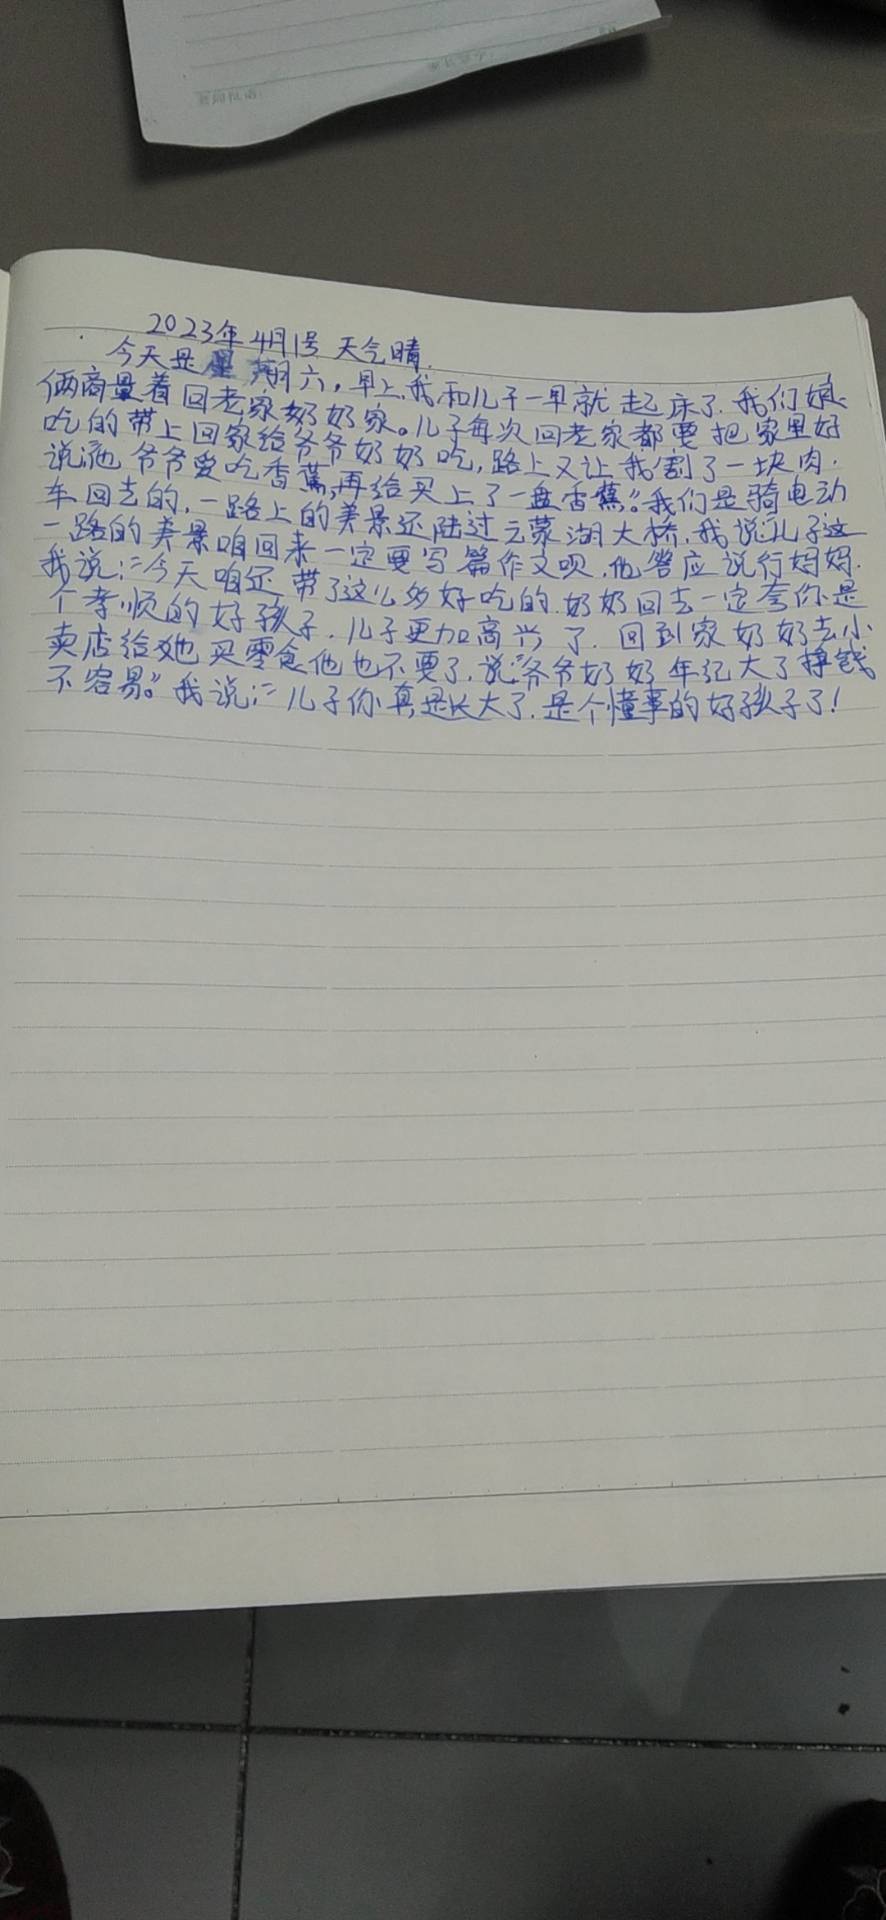 2023年4月1号 天气晴.
今天是星期六，早上，我和儿子一早就起床了.我们娘
俩商量着回老家奶奶家。儿子每次回老家都要把家里好
吃的带上回家给爷爷奶奶吃，路上又让我割了一块肉.
说:"他爷爷爱吃香蕉,再给买上了一盘香蕉。"我们是骑电动
车回去的,一路上的美景还陆过云蒙湖大桥,我说"儿子这
一路的美景咱回来一定要写篇作文呗.他答应说行妈妈.
我说:"今天咱还带了这么多好吃的.奶奶回去一定夸你是
个孝顺的好孩子.儿子更加高兴了.回到家奶奶去小
卖店给她买零食他也不要了.说"爷爷奶奶年纪大了挣钱
不容易。"我说:"儿子你真是长大了.是个懂事的好孩子了!